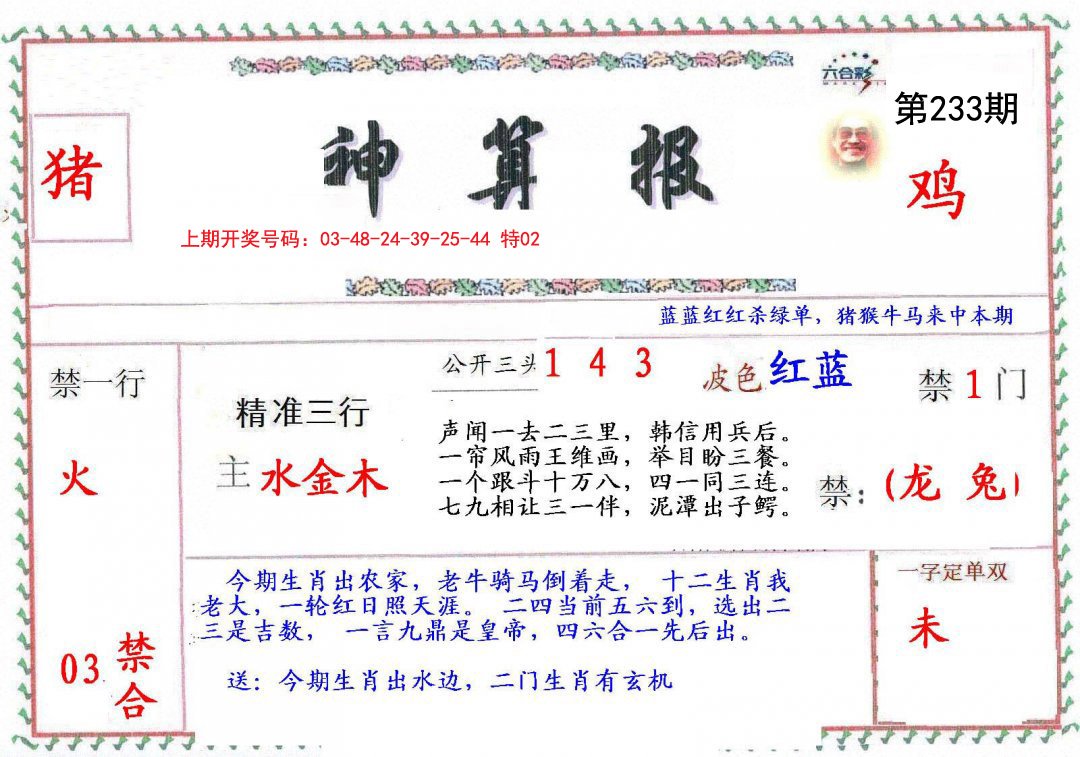 六合彩
第233期
猪
神算报
鸡
上期开奖号码：03-48-24-39-25-44 特02
蓝蓝红红杀绿单，猪猴牛马来中本期
禁一行
火
03
禁
合
精准三行
主 水金木
公开三头 1 4 3
波色 红蓝
声闻一去二三里，韩信用兵后。
一帘风雨王维画，举目盼三餐。
一个跟斗十万八，四一同三连。
七九相让三一伴，泥潭出子鳄。
禁 1 门
禁：(龙 兔)
今期生肖出农家，老牛骑马倒着走， 十二生肖我
老大，一轮红日照天涯。 二四当前五六到，选出二
三是吉数， 一言九鼎是皇帝，四六合一先后出。
送：今期生肖出水边，二门生肖有玄机
一字定单双
未